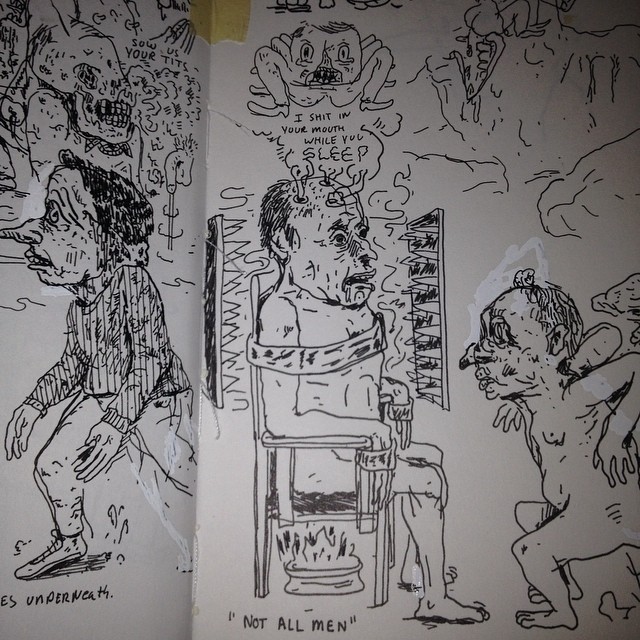 SOW US
YOUR TITS
I SHIT IN
YOUR MOUTH
WHILE YOU
SLEEP
ES UNDERNEATH.
"NOT ALL MEN"